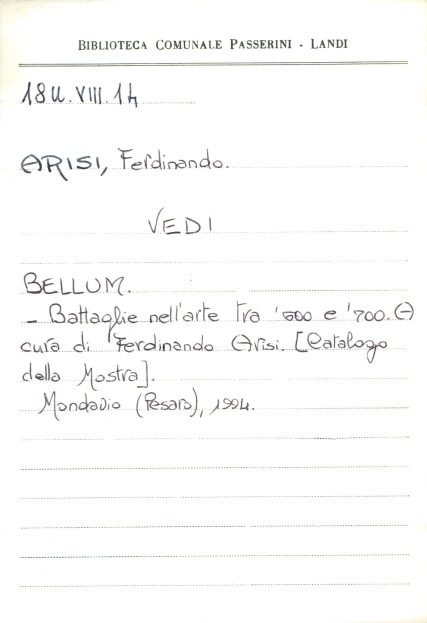 BIBLIOTECA COMUNALE PASSERINI - LANDI
18U.VIII.14
ARISI, Ferdinando.
VEDI
BELLUM.
- Battaglie nell'arte tra '600 e '700. A
cura di Ferdinando Arisi. [Catalogo
della Mostra].
Mondavio (Pesaro), 1994.